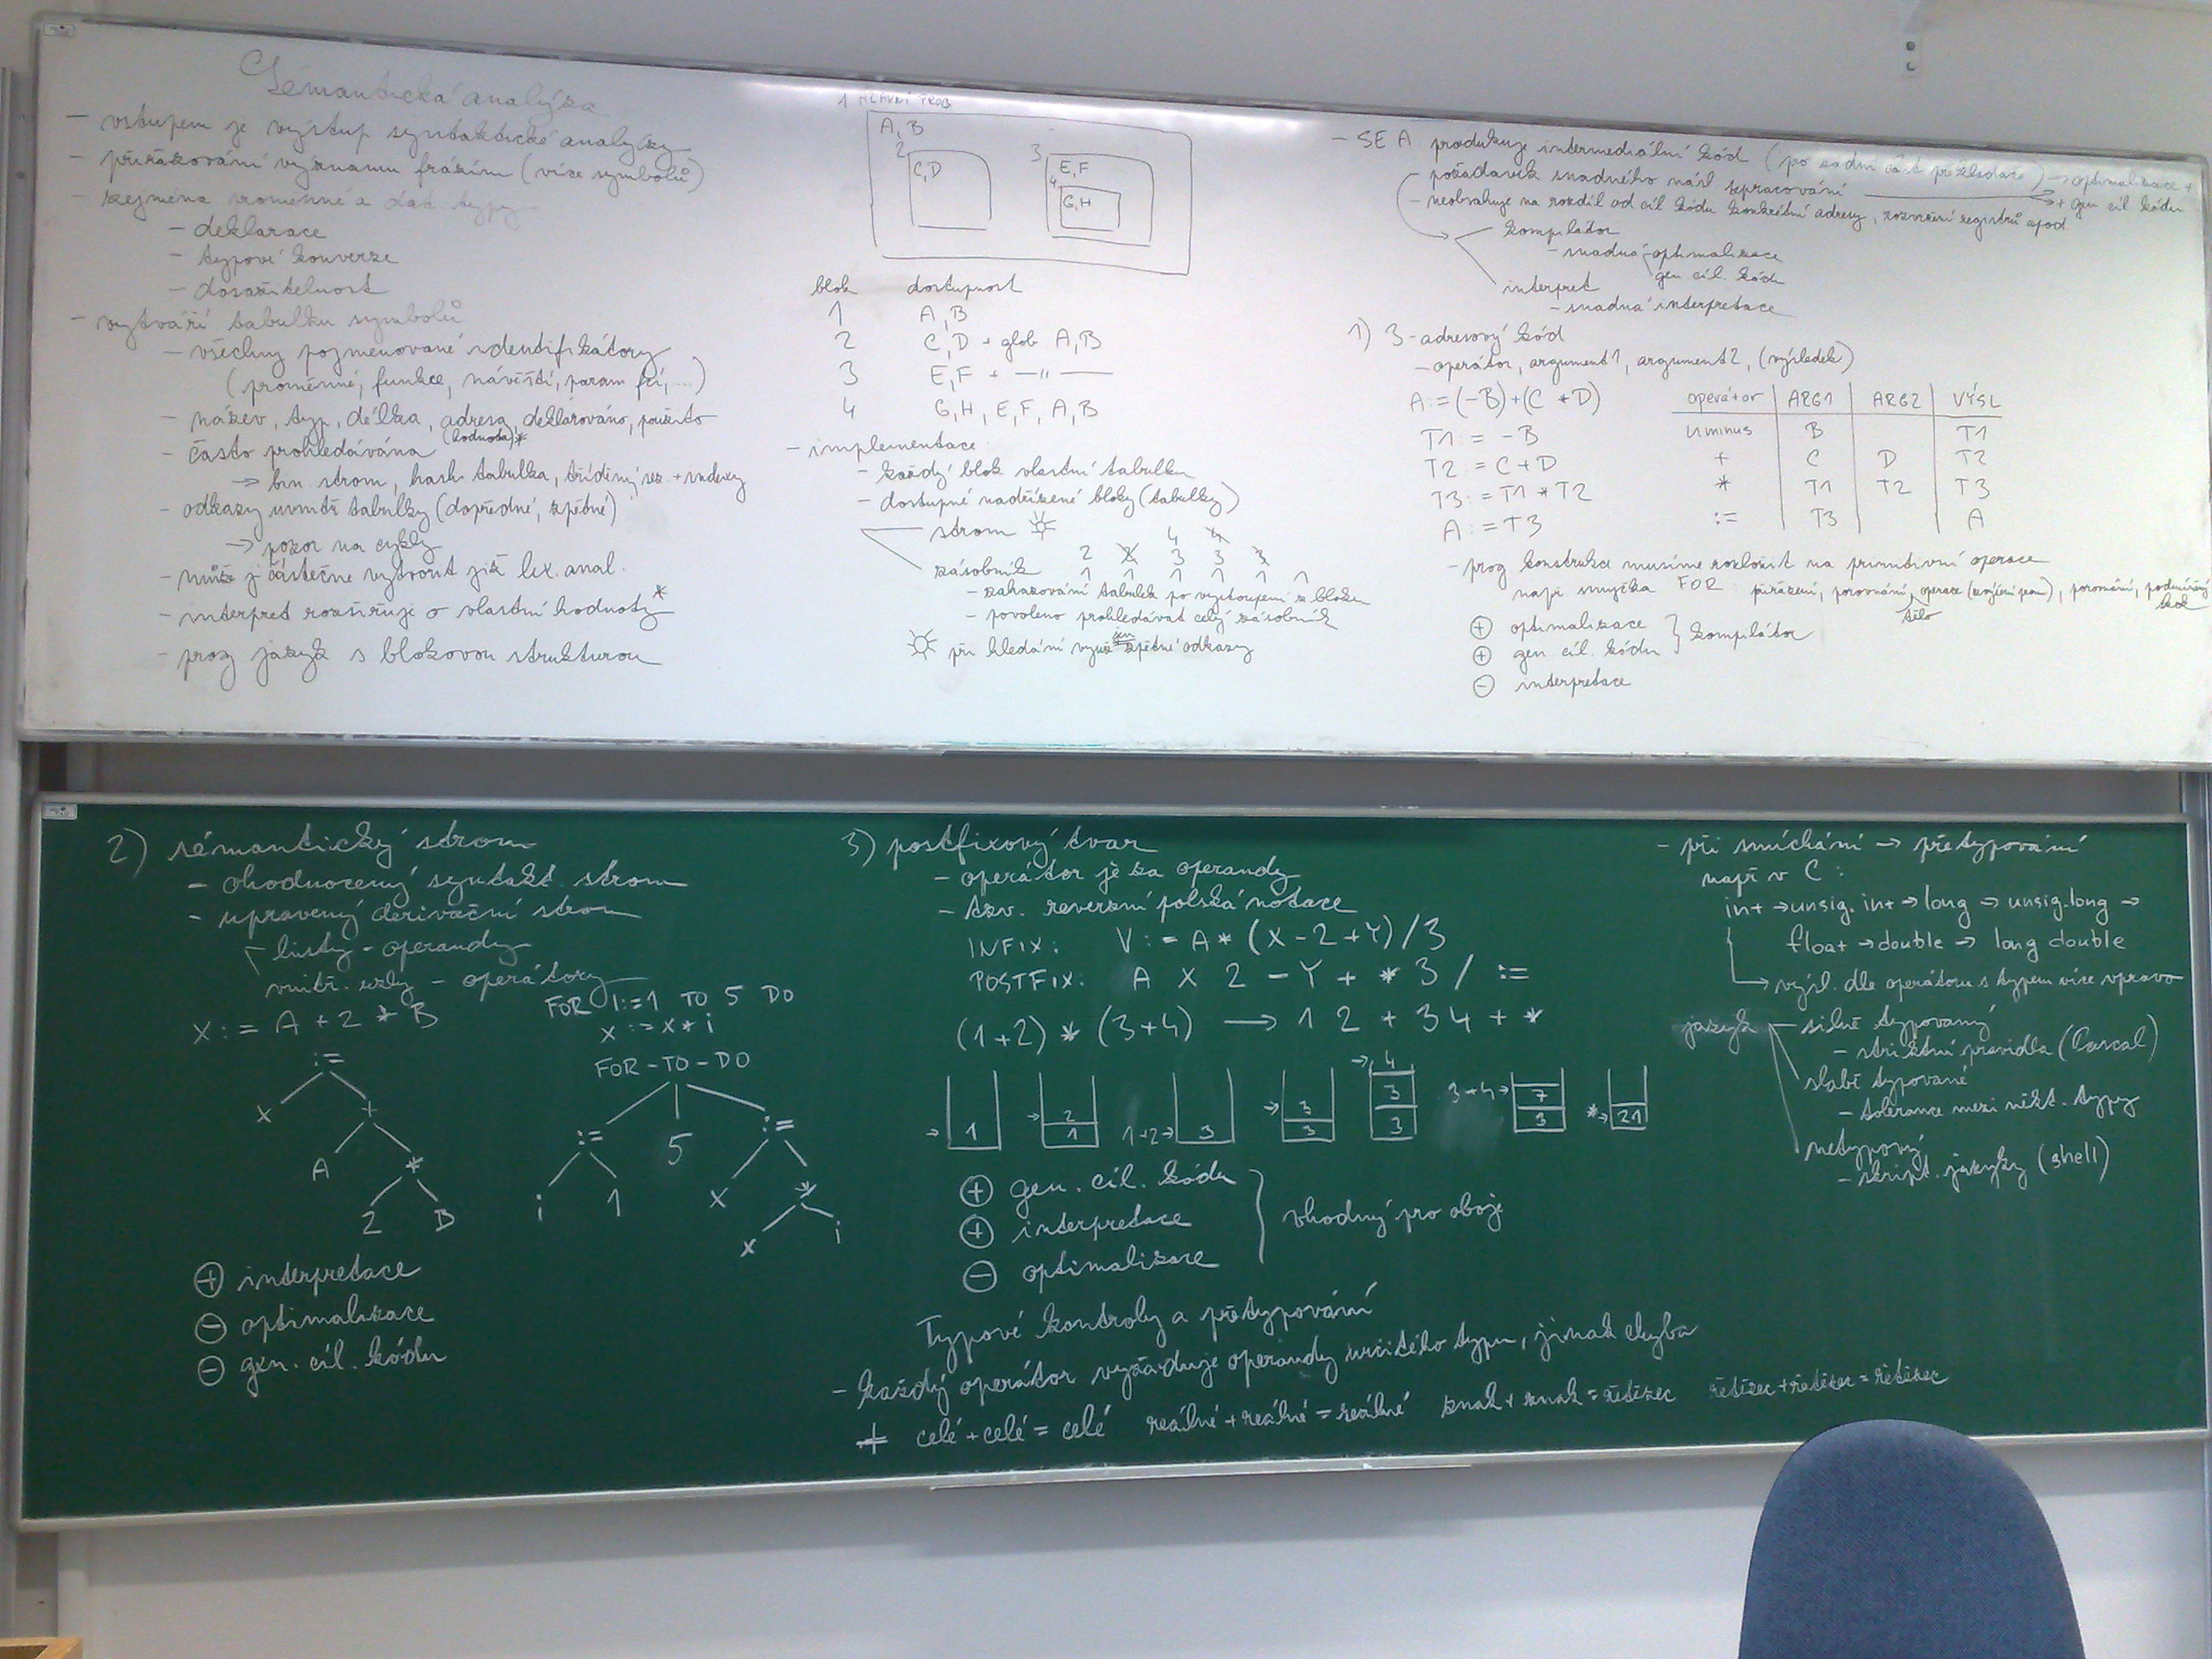 Sémantická analýza
- vstupem je výstup syntaktické analýzy
- přiřazování významu frázím (více symbolů)
- zejména proměnné a dat. typy
- deklarace
- typové konverze
- dosažitelnost
- vytváří tabulku symbolů
- všechny pojmenované identifikátory
(proměnné, funkce, návěští, param fcí, ...)
- název, typ, délka, adresa, deklarováno, použito
(hodnota)*
- často prohledávána
→ bin. strom, hash. tabulka, tříděný sez. + indexy
- odkazy uvnitř tabulky (dopředné, zpětné)
→ pozor na cykly
- může ji částečne vytvořit již lex. anal.
- interpret rozšiřuje o vlastní hodnoty *
- prog jazyk s blokovou strukturou
1 HLAVNÍ PROG
A, B
2
C, D
3
E, F
4
G, H
blok dostupnost
1 A, B
2 C, D + glob A, B
3 E, F + —"—
4 G, H, E, F, A, B
- implementace
- každý blok vlastní tabulku
- dostupné nadřízené bloky (tabulky)
- strom
4 4
2 2 3 3 3
zásobník 1 1 1 1 1 1
- zahazování tabulek po vystoupení z bloku
- povoleno prohledávat celý zásobník
jen
při hledání využ zpětné odkazy
- SEA produkuje intermediální kód (po zadní část překladače) → optimalizace +
+ gen cíl kódu
- požadavek snadného násl zpracování
- neobsahuje na rozdíl od cíl kódu konkrétní adresy, rozvržení registrů apod.
kompilátor
- snadná optimalizace
gen cíl. kódu
interpret
- snadná interpretace
1) 3-adresový kód
- operátor, argument1, argument2, (výsledek)
A := (-B)+(C * D)
T1 = -B
T2 = C+D
T3 := T1 * T2
A := T3
operátor | ARG1 | ARG2 | VÝSL
uminus B T1
+ C D T2
* T1 T2 T3
:= T3 A
- prog konstrukce musíme rozložit na primitivní operace
např smyčka FOR přiřazení, porovnání, operace (zvýšení prom), porovnání, podmíněný
skok
tělo
⊕ optimalizace
⊕ gen. cíl. kódu } kompilátor
⊖ interpretace
2) sémantický strom
- ohodnocený syntakt. strom
- upravený derivační strom
listy - operandy
vnitř. uzly - operátory
X := A + 2 * B
:=
x +
A *
2 B
FOR I:=1 TO 5 DO
x := x * i
FOR-TO-DO
:= 5 :=
i 1 x *
x i
⊕ interpretace
⊖ optimalizace
⊖ gen. cíl. kódu
3) postfixový tvar
- operátor je za operandy
- tzv. reverzní polská notace
INFIX: V := A * (X - 2 + Y) / 3
POSTFIX: A X 2 - Y + * 3 / :=
(1+2) * (3+4) → 1 2 + 3 4 + *
→ 4
→ 1 → 2 1 1+2→ 3 → 3 3 3 3 3+4→ 7 3 *→ 21
⊕ gen. cíl. kódu
⊕ interpretace } vhodný pro oboje
⊖ optimalizace
Typové kontroly a přetypování
- každý operátor vyžaduje operandy určitého typu, jinak chyba
+ celé + celé = celé reálné + reálné = reálné znak + znak = řetězec řetězec + řetězec = řetězec
- při smíchání → přetypování
např v C:
int → unsig. int → long → unsig. long →
float → double → long double
→ výsl. dle operátoru s typem více vpravo
jazyk - silně typovaný
- striktní pravidla (Pascal)
slabě typované
- tolerance mezi někt. typy
netypový
- skript. jazyky (shell)